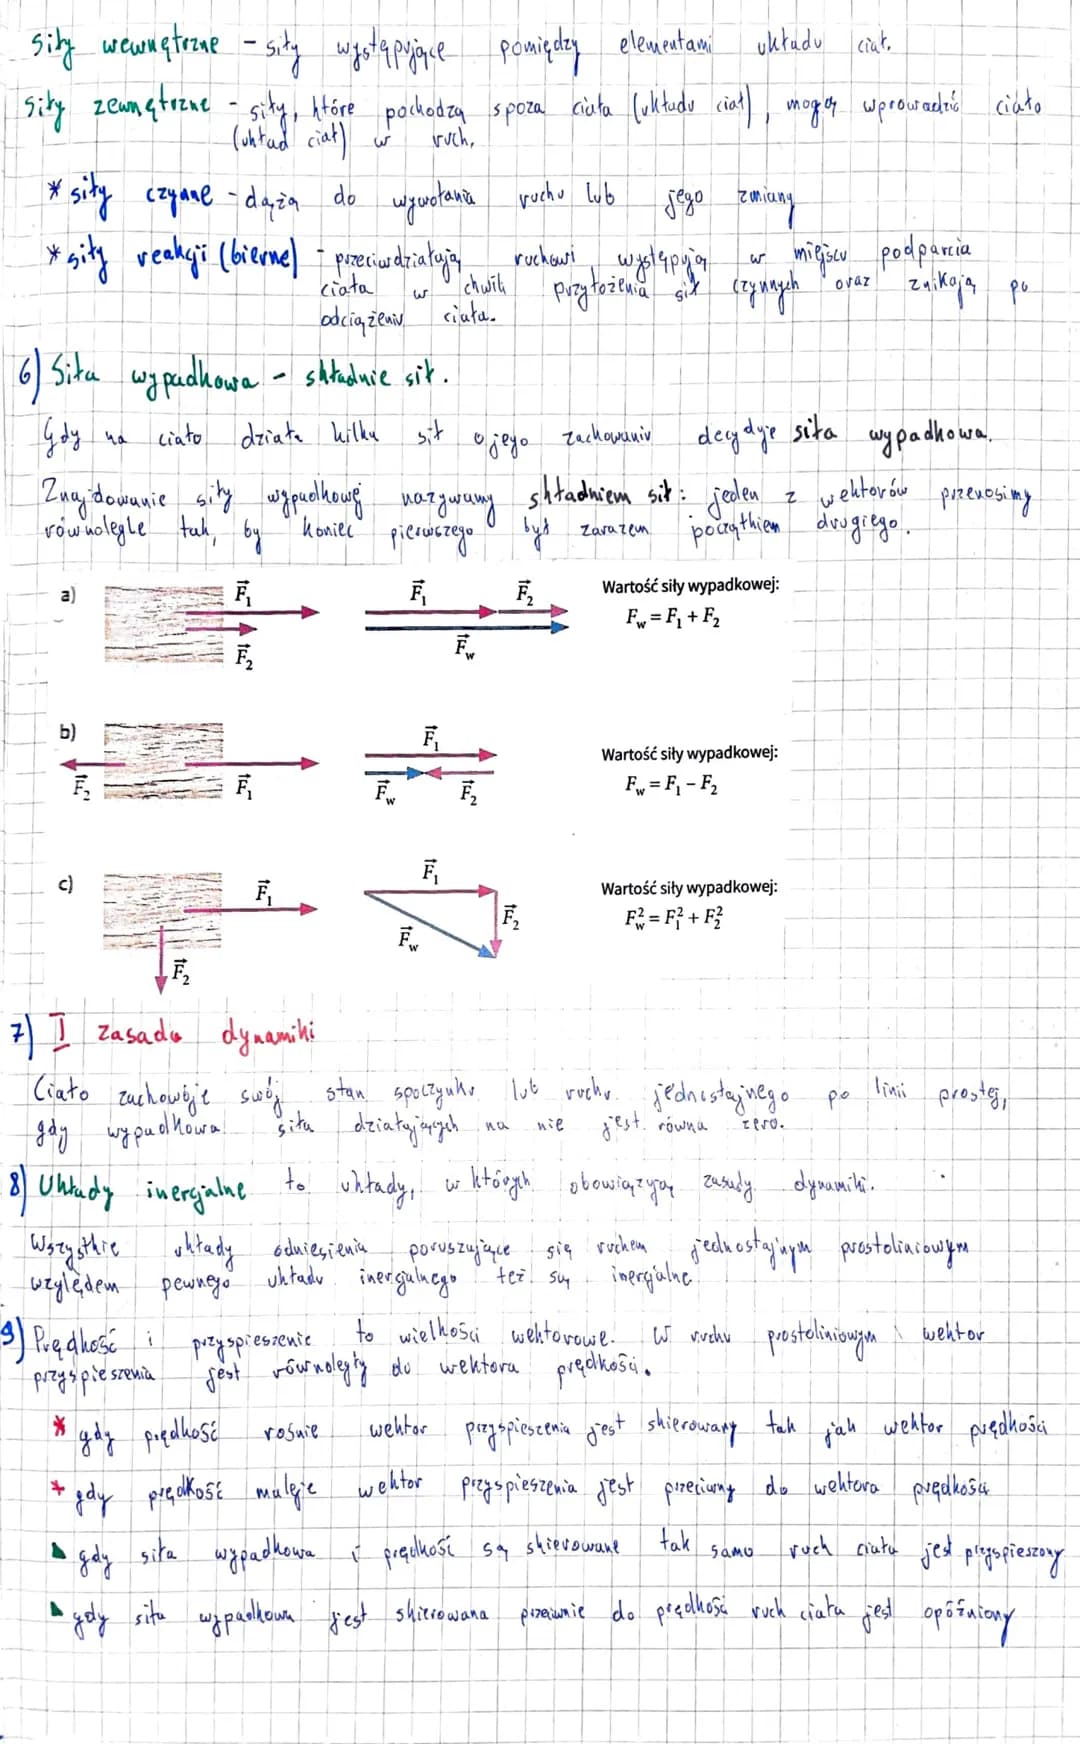 siły wewnętrzne - siły występujące pomiędzy elementami układu ciał.
siły zewnętrzne - siły, które pochodzą spoza ciała (układu ciał), mogą wprowadzić ciało
(układ ciał) w ruch.
* siły czynne - dążą do wywołania ruchu lub jego zmiany
* siły reakcji (bierne) - przeciwdziałają ruchowi, występują w miejscu podparcia
ciała w chwili przyłożenia sił czynnych oraz znikają po
odciążeniu ciała.
6) Siła wypadkowa - składnie sił.
Gdy na ciało działa kilka sił o jego zachowaniu decyduje siła wypadkowa.
Znajdowanie siły wypadkowej nazywamy składniem sił: jeden z wektorów przenosimy
równolegle tak, by koniec pierwszego był zarazem początkiem drugiego.
a) F₁ F₁ F₂ Wartość siły wypadkowej:
F₂ Fw Fw = F₁ + F₂
b) F₁ Wartość siły wypadkowej:
F₂ F₁ Fw F₂ Fw = F₁ – F₂
c) F₁ F₁ Wartość siły wypadkowej:
F₂ Fw F₂ Fw² = F₁² + F₂²
7) I zasada dynamiki
Ciało zachowuje swój stan spoczynku lub ruchu jednostajnego po linii prostej,
gdy wypadkowa siła działających na nie jest równa zero.
8) Układy inercjalne to układy, w których obowiązują zasady dynamiki.
Wszystkie układy odniesienia poruszające się ruchem jednostajnym prostoliniowym
względem pewnego układu inercjalnego też są inercjalne
9) Prędkość i przyspieszenie to wielkości wektorowe. W ruchu prostoliniowym wektor
przyspieszenia jest równoległy do wektora prędkości.
* gdy prędkość rośnie wektor przyspieszenia jest skierowany tak jak wektor prędkości
* gdy prędkość maleje wektor przyspieszenia jest przeciwny do wektora prędkości
gdy siła wypadkowa i prędkość są skierowane tak samo ruch ciała jest przyspieszony
gdy siła wypadkowa jest skierowana przeciwnie do prędkości ruch ciała jest opóźniony